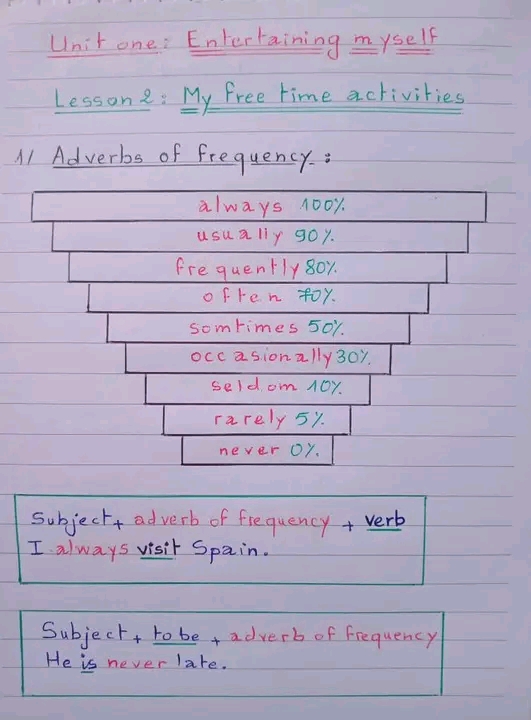 Unit one: Entertaining myself
Lesson 2: My free time activities
1/ Adverbs of frequency:
always 100%
usually 90%
frequently 80%
often 70%
somtimes 50%
occasionally 30%
seldom 10%
rarely 5%
never 0%
Subject + adverb of frequency + verb
I always visit Spain.
Subject + to be + adverb of frequency
He is never late.